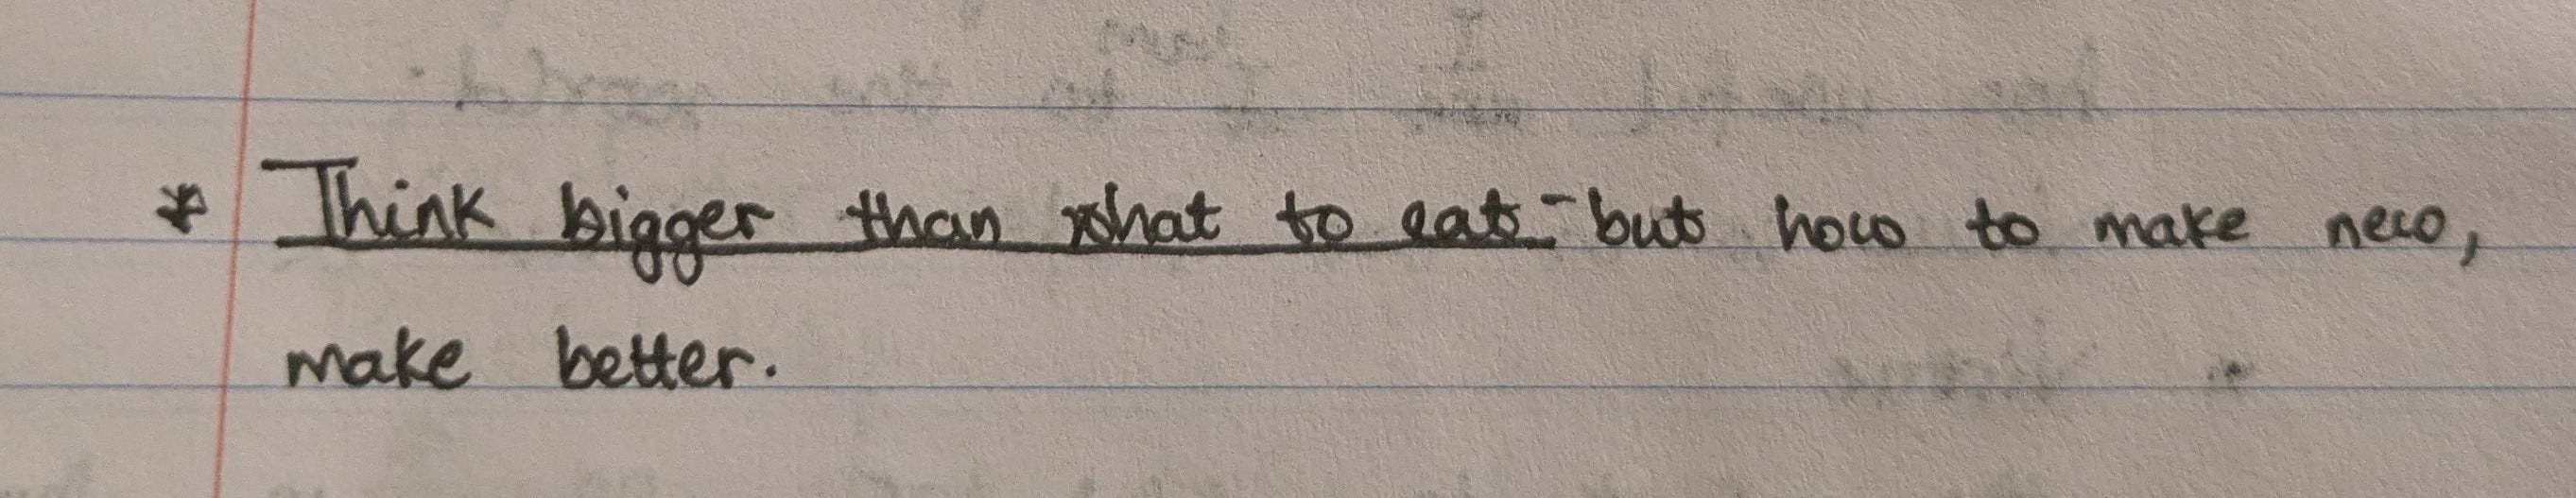 * Think bigger than what to eat - but how to make new,
make better.